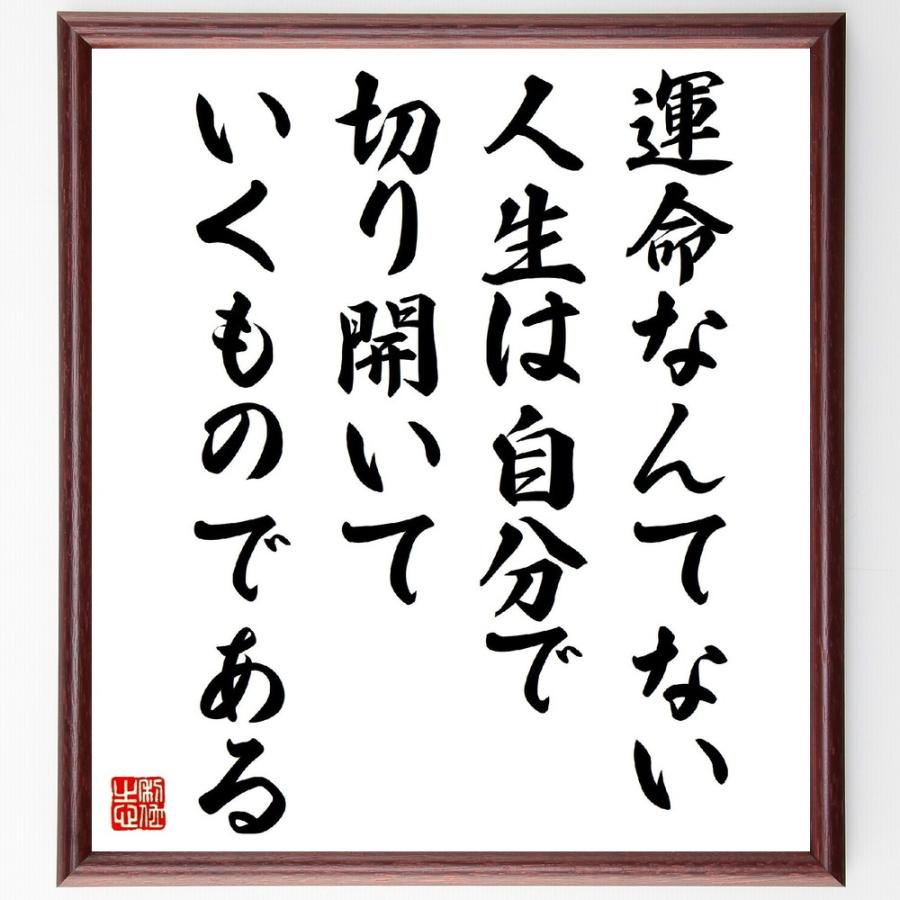 運命なんてない
人生は自分で
切り開いて
いくものである